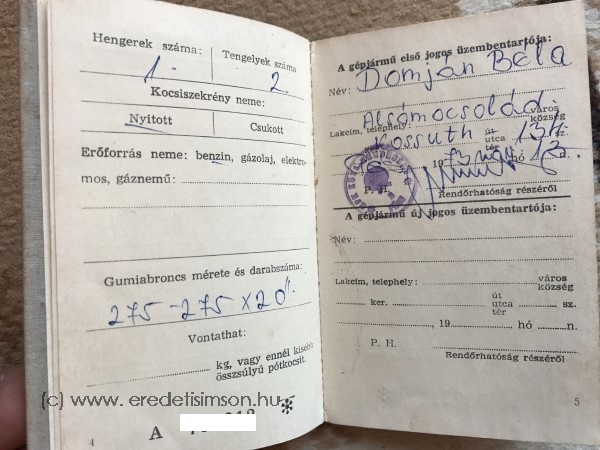 Hengerek száma: Tengelyek száma
1. 2.
Kocsiszekrény neme:
Nyitott Csukott
Erőforrás neme: benzin, gázolaj, elektro-
mos, gáznemű:
Gumiabroncs mérete és darabszáma:
275 - 275 x 20".
Vontathat:
kg, vagy ennél kisebb
összsúlyú pótkocsit.
(c) www.eredetisimson.hu
4 A
A gépjármű első jogos üzembentartója:
Név: Domján Béla
Alsómocsolád város
Lakcím, telephely: község
Kossuth út
utca 13 sz.
tér
19 73 hó 13 n.
P. H. Rendőrhatóság részéről
A gépjármű új jogos üzembentartója:
Név:
Lakcím, telephely: város
község
ker. út
utca sz.
tér
, 19 hó n.
P. H.
Rendőrhatóság részéről
5